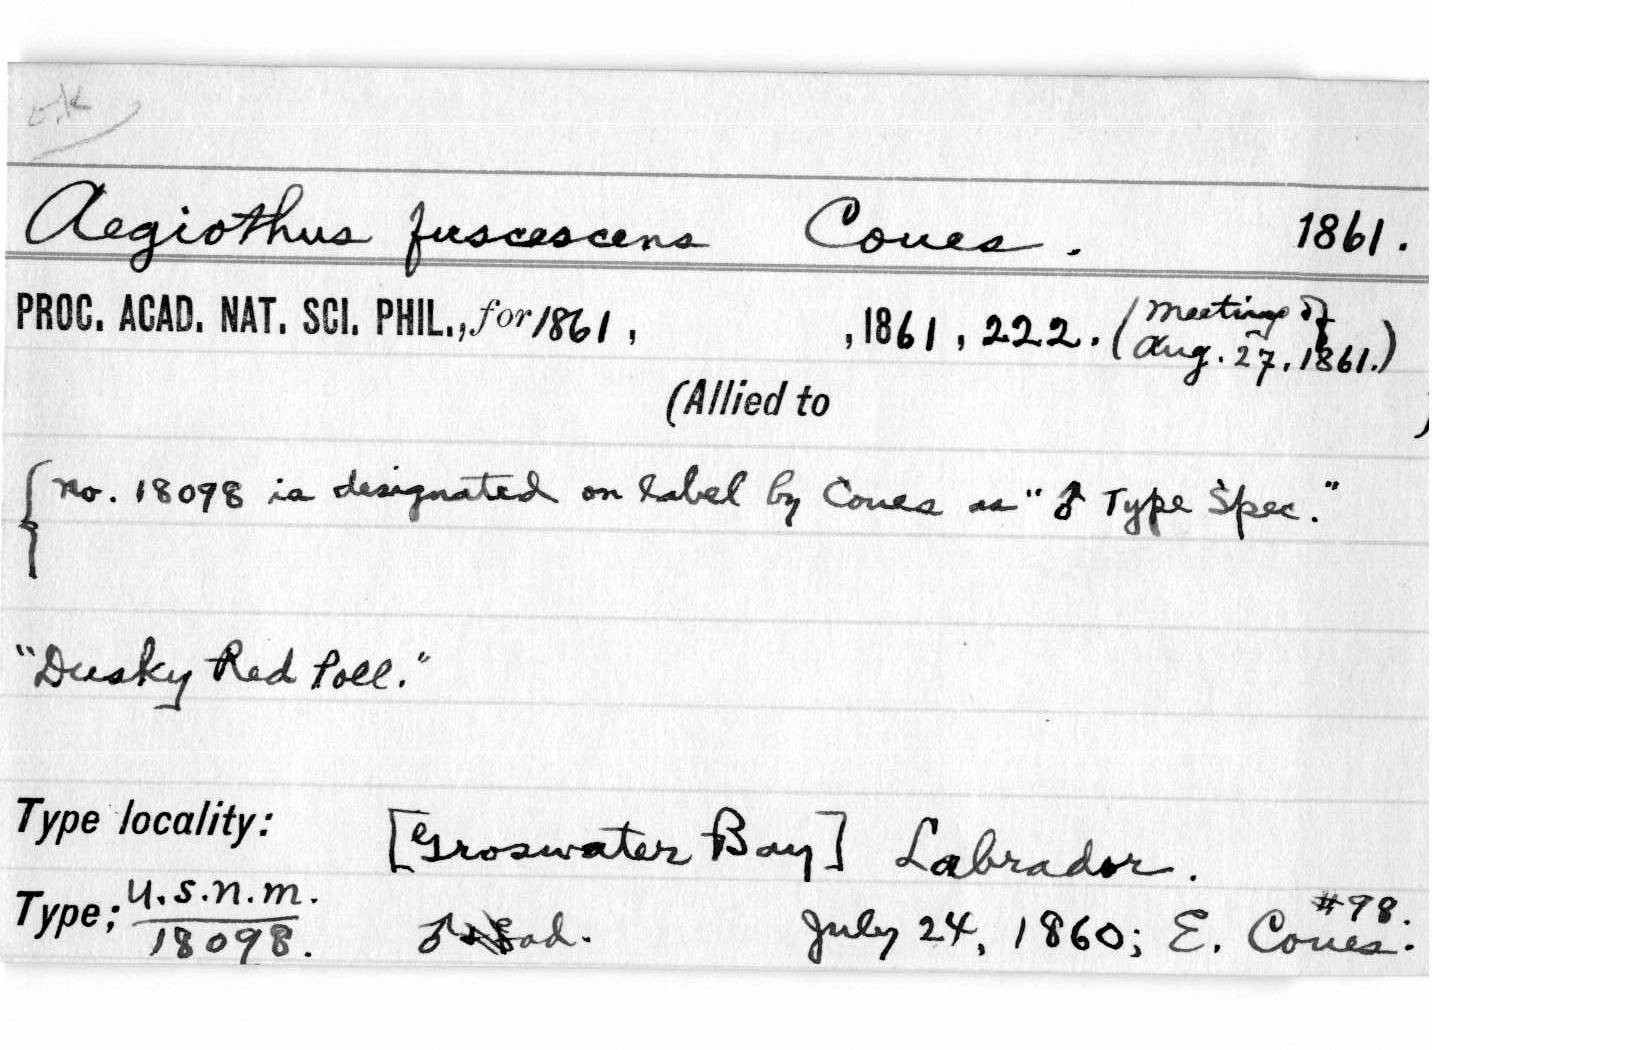 o.k
Aegiothus fuscescens Coues. 1861.
PROC. ACAD. NAT. SCI. PHIL., for 1861, , 1861, 222. (Meeting of
Aug. 27, 1861.)
(Allied to )
No. 18098 is designated on label by Coues as "♂ Type Spec."
"Dusky Red Poll."
Type locality: [Groswater Bay] Labrador.
Type; U.S.N.M. #98.
18098. ♂ ad. July 24, 1860; E. Coues.